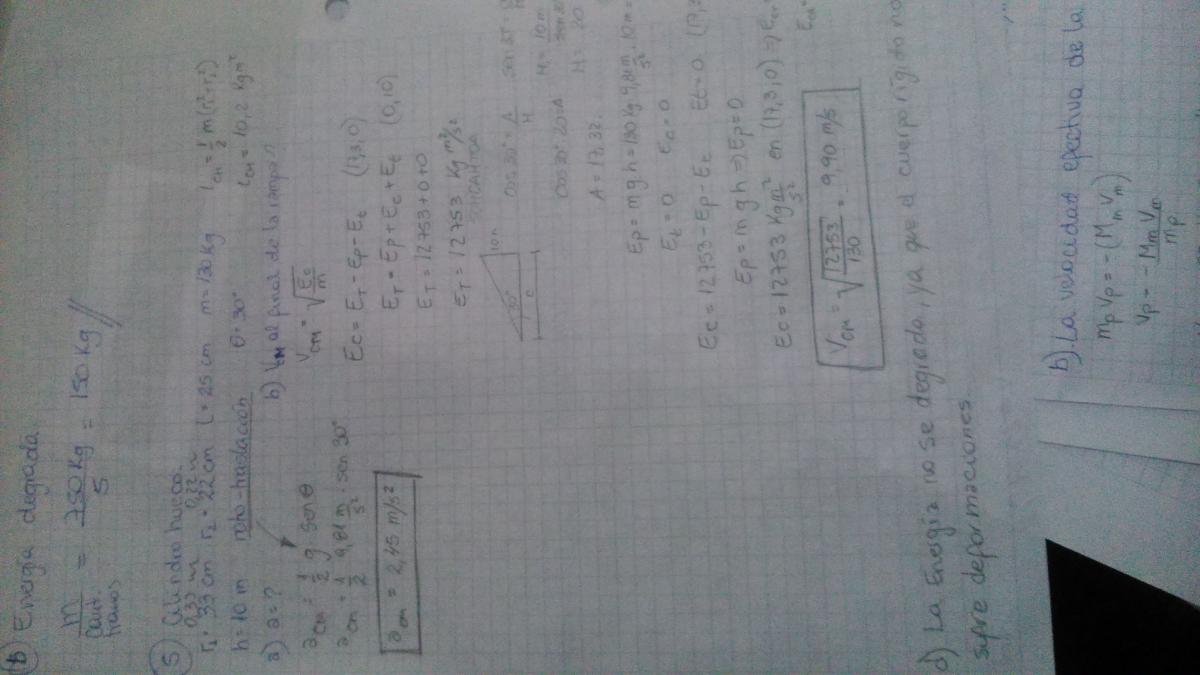 b) Energía degradada.
m / Cant. tramos = 750 Kg / 5 = 150 Kg //
5) Cilindro hueco.
0,33 m 0,22 m
r₁ = 33 cm r₂ = 22 cm L = 25 cm m = 130 Kg I_CM = 1/2 m (r₁² + r₂²)
h = 10 m roto-traslación θ = 30° I_CM = 10,2 Kg m²
a) a = ?
a_cm = 1/2 g sen θ
a_cm = 1/2 9,81 m/s² . sen 30°
a_cm = 2,45 m/s²
b) V_CM al final de la rampa
V_CM = √(Ec/m)
Ec = E_T - Ep - Ee (17,3,0)
E_T = Ep + Ec + Ee (0,10)
E_T = 12753 + 0 + 0
E_T = 12753 Kg m²/s²
10 m
30°
C
cos 30° = A/H
cos 30° 20 = A
A = 17,32.
H = 10 m
H = 20
Ep = m g h = 130 Kg 9,81 m/s² 10 m =
Ee = 0 Ec = 0
Ec = 12753 - Ep - Ee Ee = 0 (17,3
Ep = m g h => Ep = 0
Ec = 12753 Kg m²/s² en (17,3,0) =>
V_CM = √(12753/130) = 9,90 m/s
d) La Energía no se degrada, ya que el cuerpo rígido no
sufre deformaciones.
b) La velocidad efectiva de la
m_p v_p = - (M_m v_m)
v_p = - M_m v_m / m_p